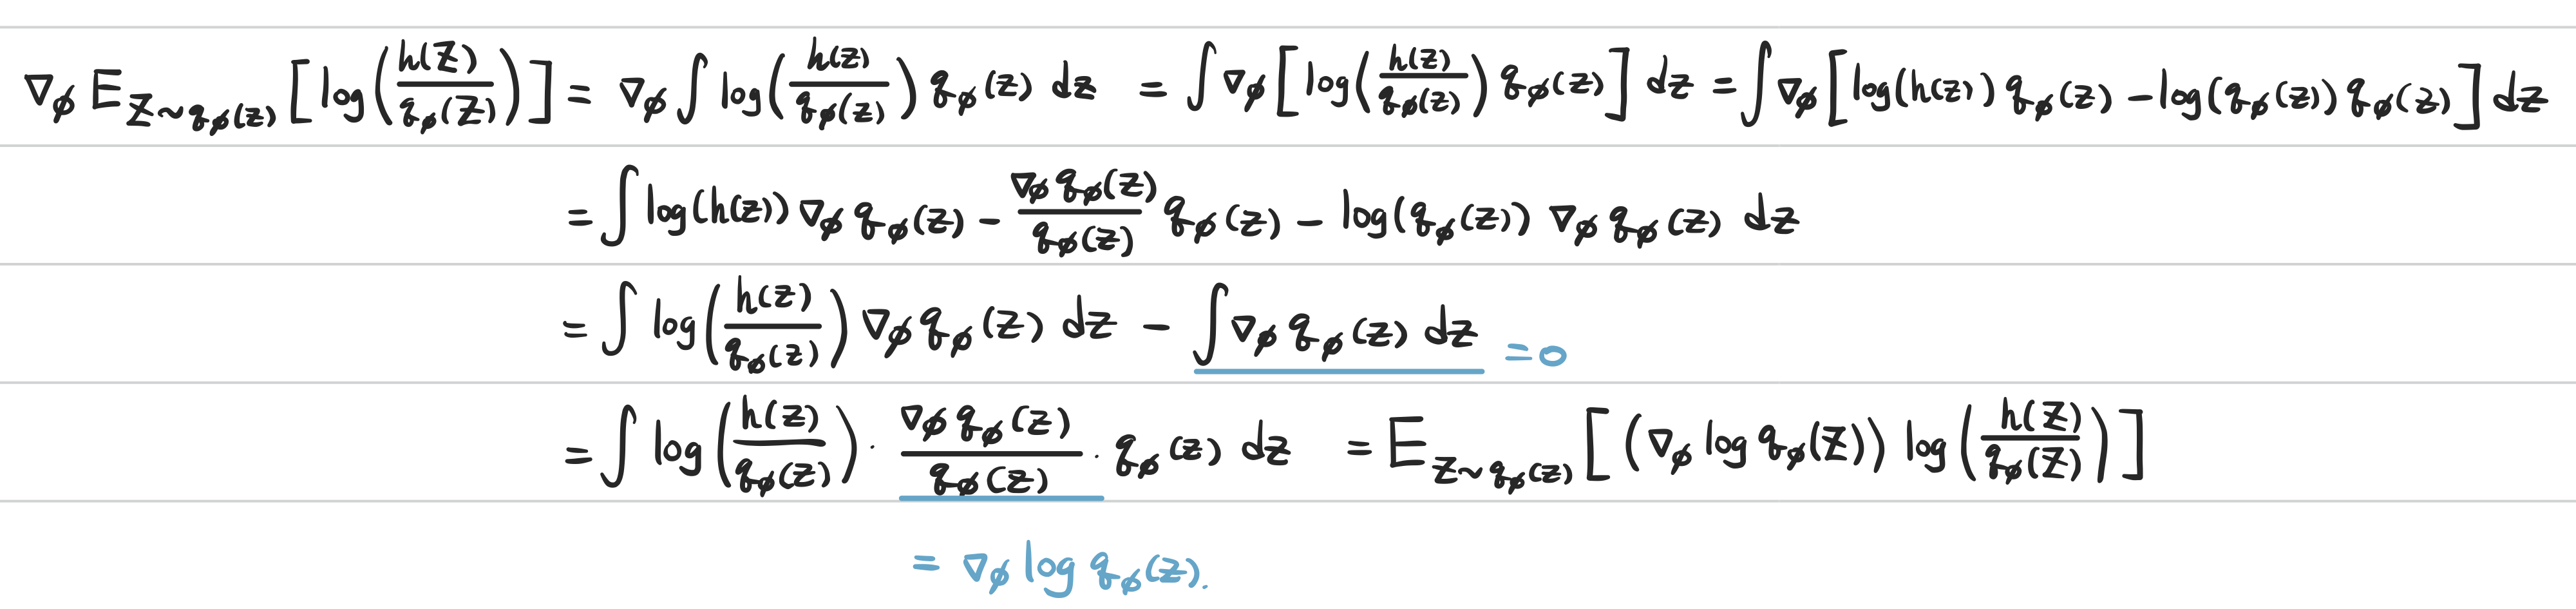 ∇_ϕ E_{Z∼q_ϕ(z)} [ log( h(Z) / q_ϕ(Z) ) ] = ∇_ϕ ∫ log( h(z) / q_ϕ(z) ) q_ϕ(z) dz = ∫ ∇_ϕ [ log( h(z) / q_ϕ(z) ) q_ϕ(z) ] dz = ∫ ∇_ϕ [ log(h(z)) q_ϕ(z) − log(q_ϕ(z)) q_ϕ(z) ] dz
= ∫ log(h(z)) ∇_ϕ q_ϕ(z) − ∇_ϕ q_ϕ(z) / q_ϕ(z) q_ϕ(z) − log(q_ϕ(z)) ∇_ϕ q_ϕ(z) dz
= ∫ log( h(z) / q_ϕ(z) ) ∇_ϕ q_ϕ(z) dz − ∫ ∇_ϕ q_ϕ(z) dz = 0
= ∫ log( h(z) / q_ϕ(z) ) · ∇_ϕ q_ϕ(z) / q_ϕ(z) · q_ϕ(z) dz = E_{Z∼q_ϕ(z)} [ (∇_ϕ log q_ϕ(Z)) log( h(Z) / q_ϕ(Z) ) ]
= ∇_ϕ log q_ϕ(z).